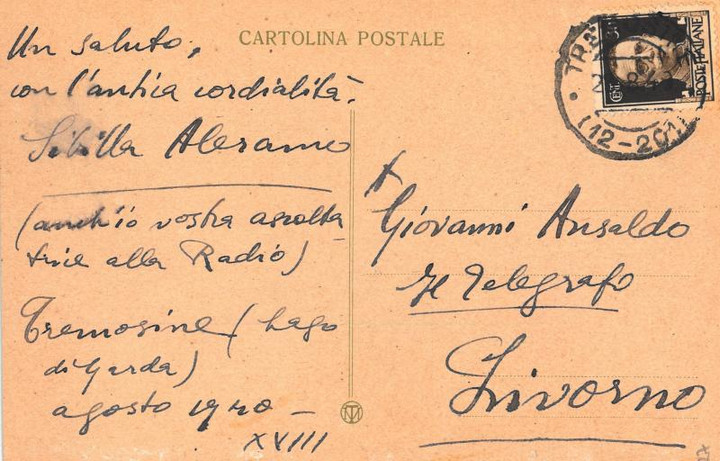 CARTOLINA POSTALE
Un saluto,
con l'antica cordialità.
Sibilla Aleramo
(anch'io vostra ascolta
trice alla Radio)
Tremosine (Lago
di Garda)
agosto 1940 –
XVIII
Giovanni Ansaldo
Il Telegrafo
Livorno
POSTE ITALIANE
CENT
(12-20)
27